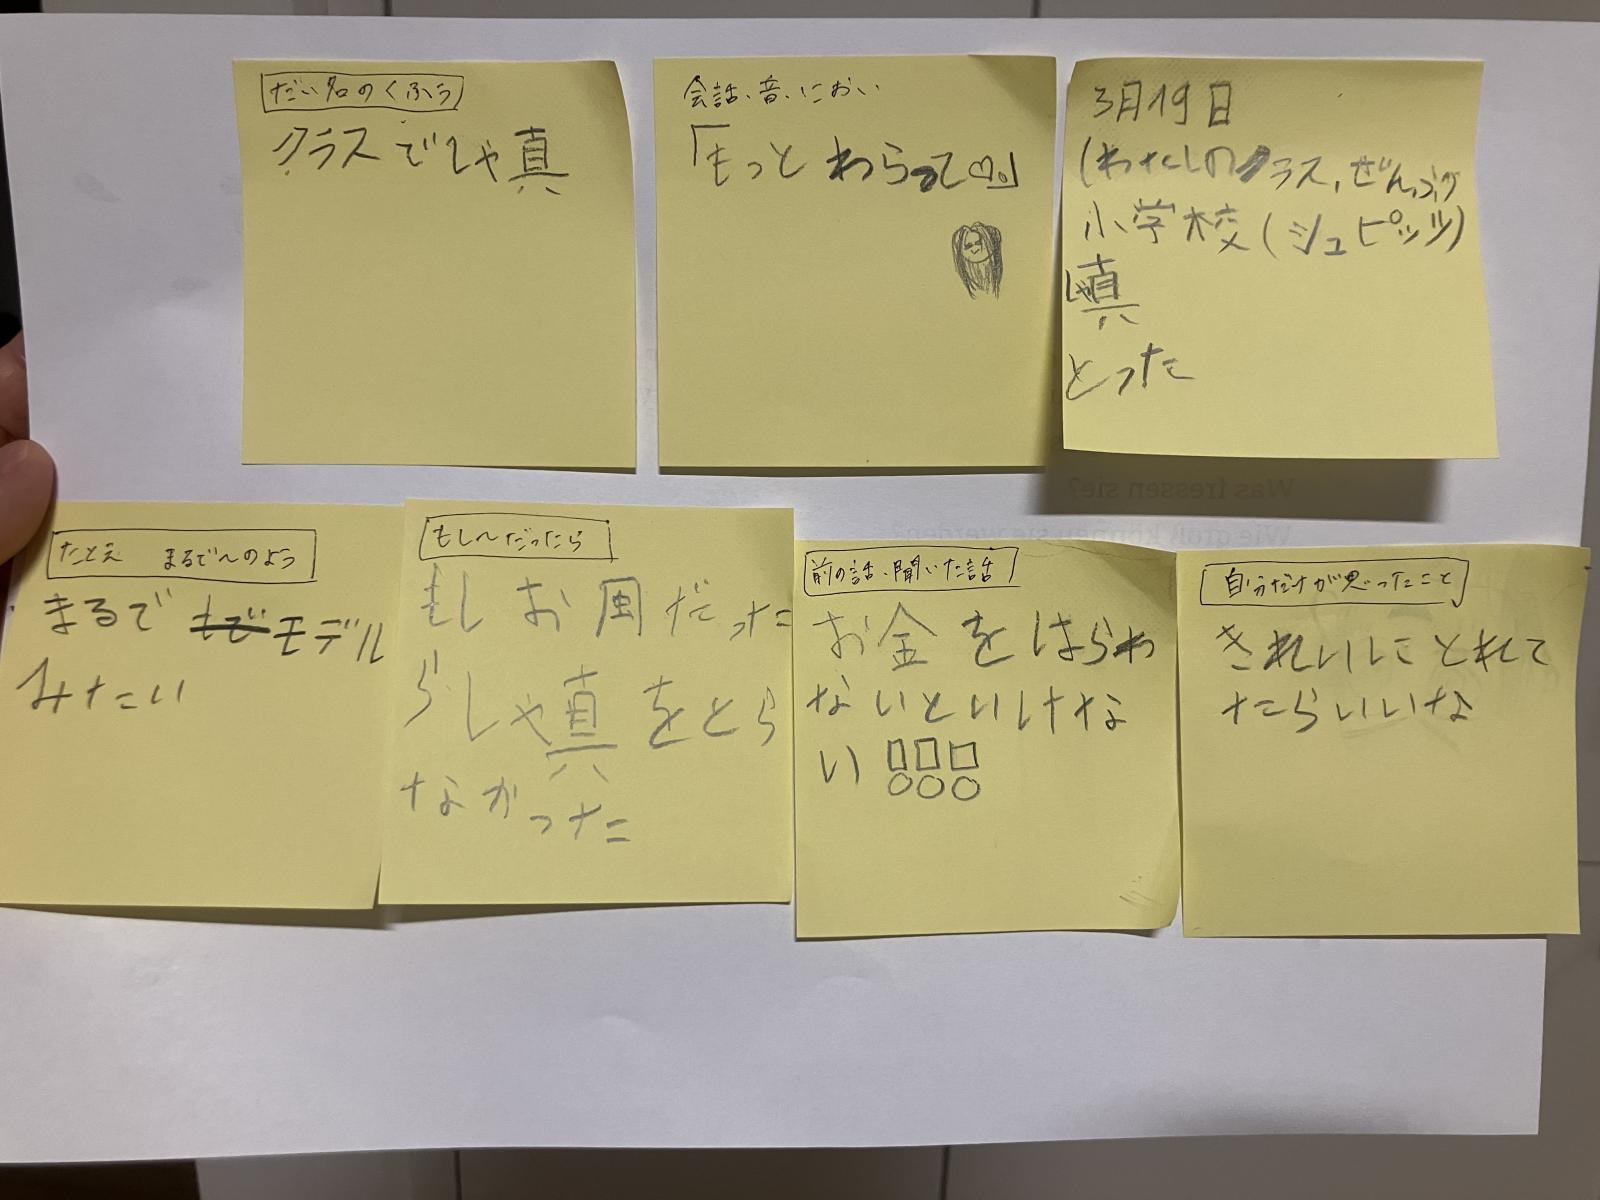 だい名のくふう
クラスでしゃ真
会話、音、におい
「もっとわらって♡。」
3月19日
(わたしのクラス、ぜんぶの
小学校(シュピッツ)
しゃ真
とった
Was fressen sie?
Wie groß können sie werden?
たとえ まるで〜のよう
まるで もで モデル
みたい
もし〜だったら
もしお風だった
らしゃ真をとら
なかった
前の話、聞いた話
お金をはらわ
ないといけな
い
自分だけが思ったこと
きれいにとれて
たらいいな